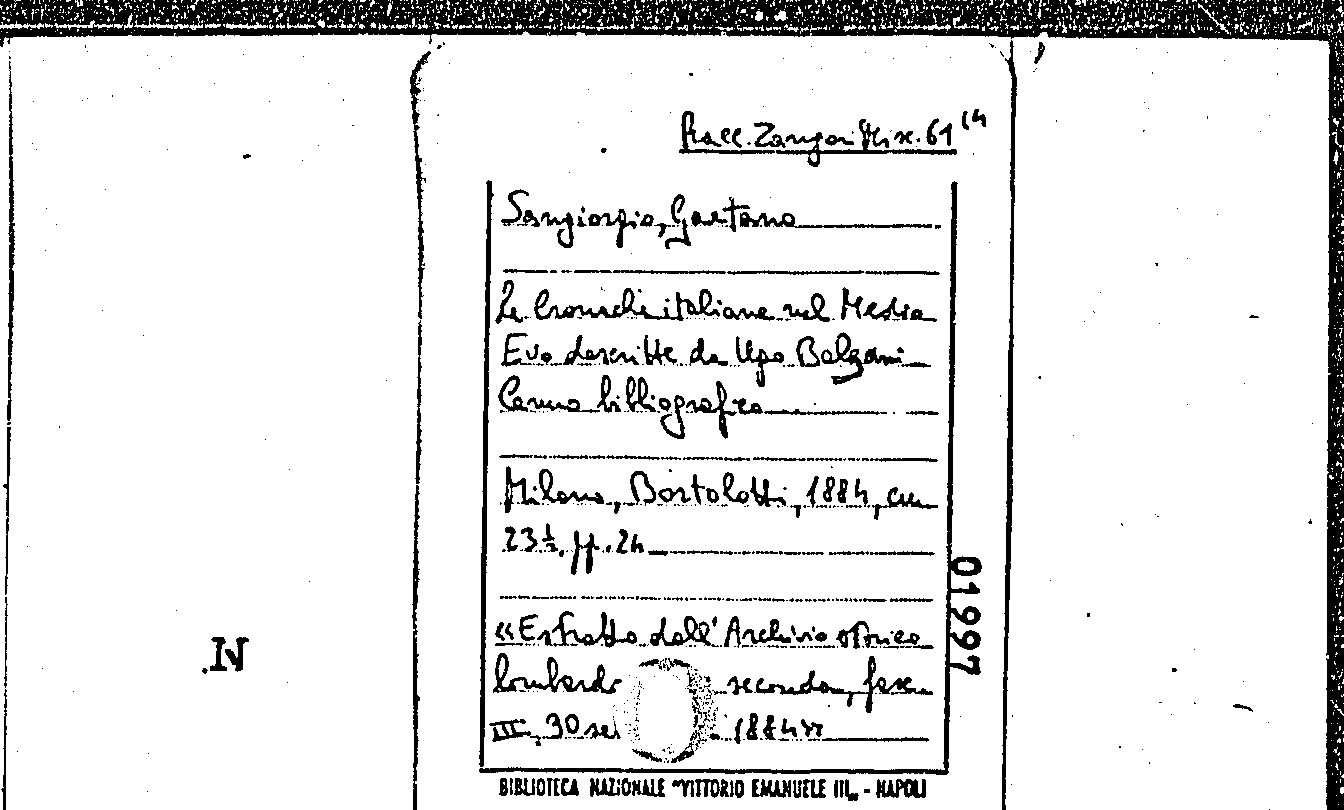 Racc. Zangari Misc. 61 14
Sangiorgio, Gaetano
Le Cronache italiane nel Medio
Evo descritte da Ugo Balzani
Cenno bibliografico
Milano, Bortolotti, 1884, cm
23½. pp. 24
«Estratto dall' Archivio storico
lombardo seconda, fasc.
III, 30 set 1884»
01997
N.
BIBLIOTECA NAZIONALE "VITTORIO EMANUELE III„ - NAPOLI